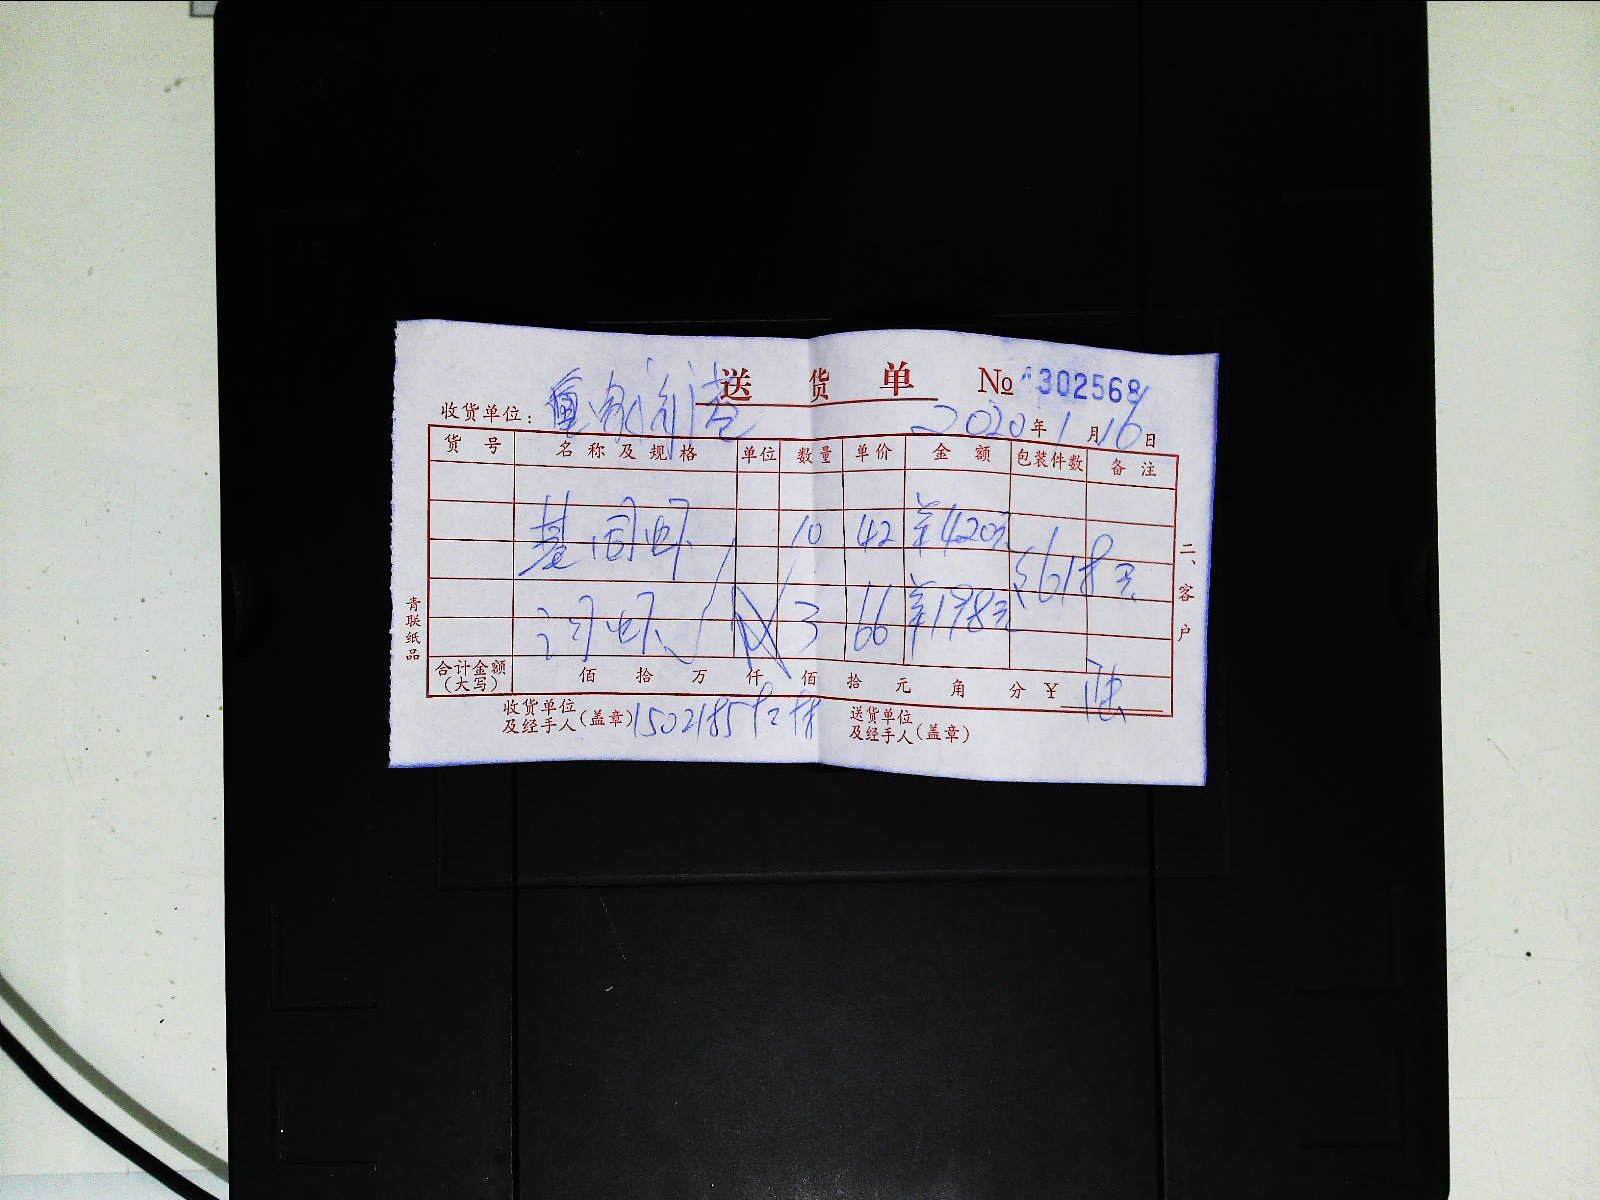 送货单 № 302568
收货单位: 2020年1月16日
货号 名称及规格 单位 数量 单价 金额 包装件数 备注
基围虾 10 42 ¥420元
618元
河虾 3 66 ¥198元
合计金额(大写) 佰 拾 万 仟 佰 拾 元 角 分 ¥
收货单位及经手人(盖章) 送货单位及经手人(盖章)
二、客户
青联纸品